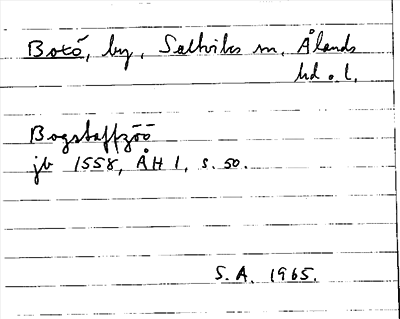 Botö, by, Saltviks sn, Ålands
hd o. l.
Bogstaffzöö
jb 1558, ÅH 1, s. 50.
S.A. 1965.